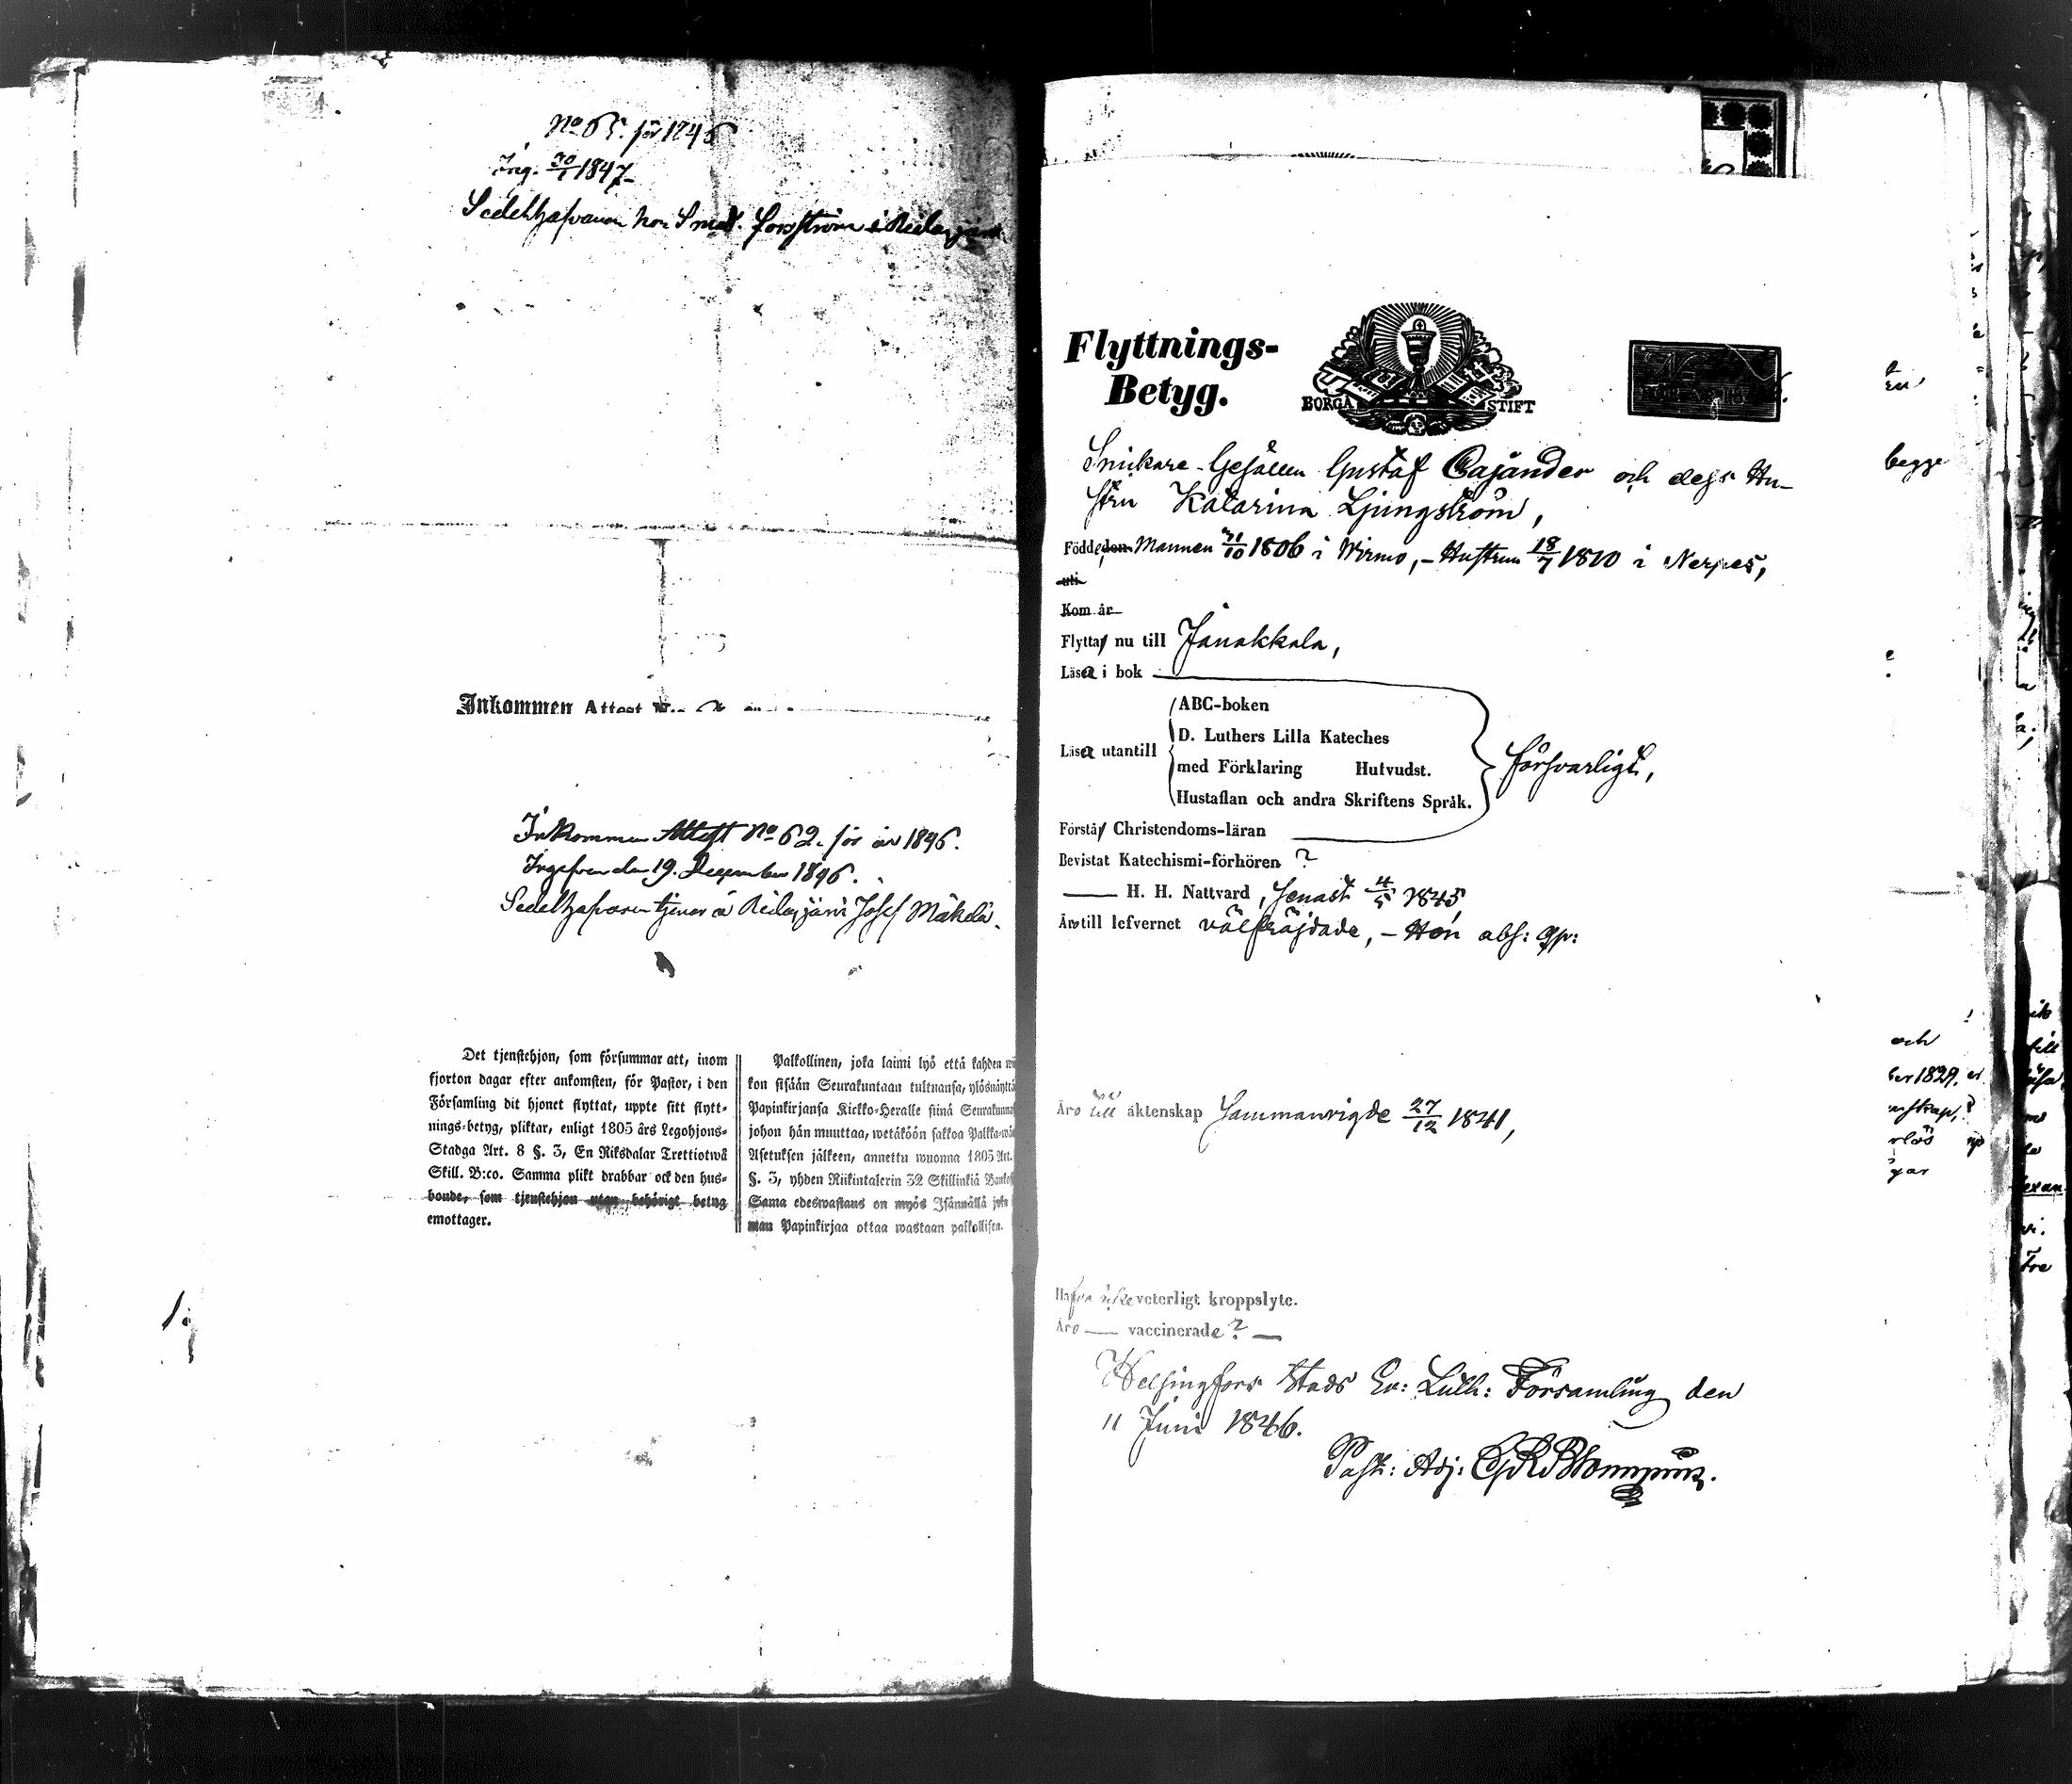 No 65. för 1846
Ing. 30/1 1847
Sedelhafvaren hos Smed. Forsström i
Inkommen Attest
Inkommen Attest No 62. för år 1846.
Ingifven den 19. December 1846.
Sedelhafvaren tjenar å Josef Mäkelä.
Det tjenstehjon, som försummar att, inom
fjorton dagar efter ankomsten, för Pastor, i den
Församling dit hjonet flyttat, uppte sitt flytt-
nings-betyg, pliktar, enligt 1805 års Legohjons-
Stadga Art. 8 §. 3, En Riksdalar Trettiotwå
Skill. B:co. Samma plikt drabbar ock den hus-
bonde, som tjenstehjon utan behörigt betyg
emottager.
Palkollinen, joka laimi lyö että kahden
kon sisään Seurakuntaan tultuansa, ylösnäyttä
Papinkirjansa Kirkko-Heralle siinä Seurakunna
johon hän muuttaa, wetäköön sakkoa Palkka-
Asetuksen jälkeen, annettu wuonna 1805 Art.
§. 3, yhden Riikintalerin 32 Skillinkiä
Sama edeswastaus on myös Isännällä joka
man Papinkirjaa ottaa wastaan palkollisen.
Flyttnings-
Betyg.
BORGÅ STIFT
Snickare-Gesällen Gustaf Cajander och dess Hu-
stru Katarina Ljungström,
Födde, den Mannen 31/10 1806 i Wirmo, – Hustrun 18/7 1810 i Nerpes,
uti
Kom år
Flytta nu till Janakkala,
Läsa i bok
ABC-boken
D. Luthers Lilla Kateches
Läsa utantill
med Förklaring Hufvudst.
försvarligt,
Hustaflan och andra Skriftens Språk.
Förstå Christendoms-läran
Bevistat Katechismi-förhören ?
H. H. Nattvard, senast 4/5 1845,
Äro till lefvernet välfräjdade, – Hon abs: op:
Äro till äktenskap Sammanvigde 27/12 1841,
Hafva icke veterligt kroppslyte.
Äro — vaccinerade ? —
Helsingfors Stads Ev: Luth: Församling den
11 Junii 1846.
Past: Adj:
begge
och
ber 1829.